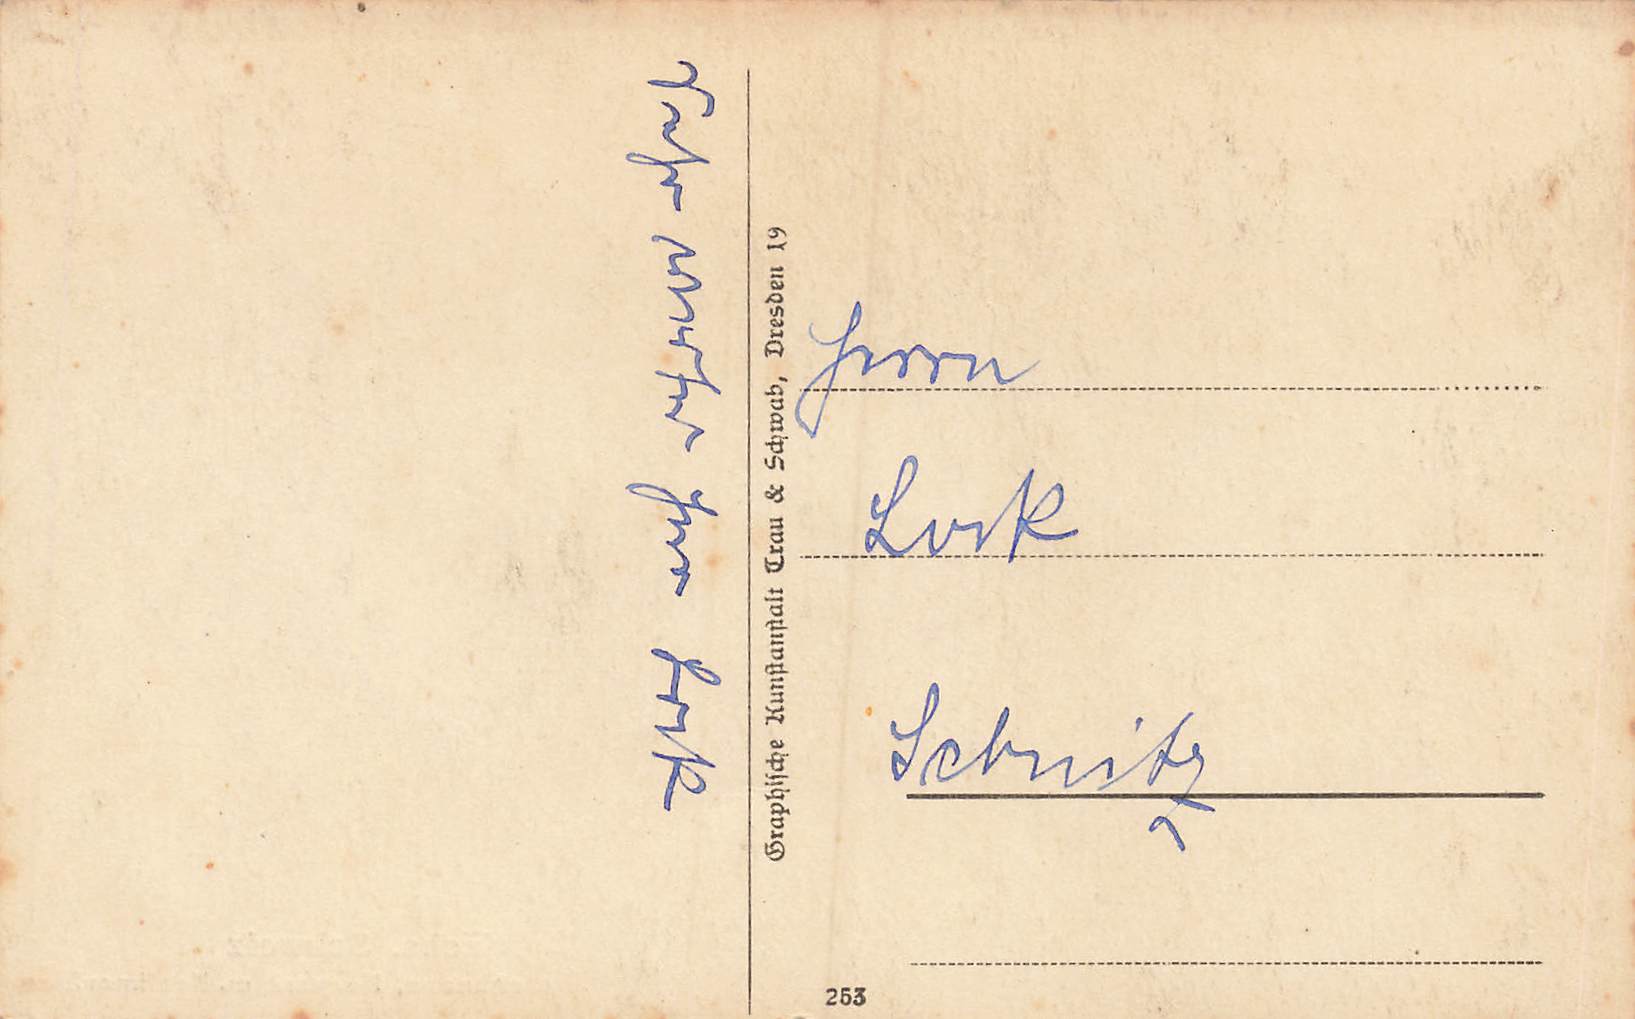 Sehr werter Herr Lork
Graphische Kunstanstalt Trau & Schwab, Dresden 19
Herrn
Lork
Sebnitz
253